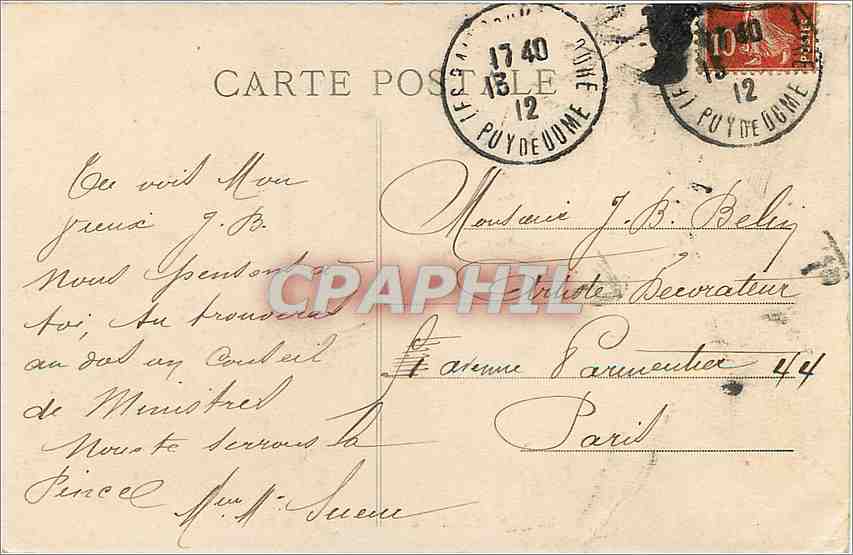 CARTE POSTALE
17 40
13
12
PUY DE DOME
10
17 40
13
12
PUY DE DOME
Tu vois Mon
vieux J. B.
nous pensons à
toi, tu trouveras
au dos un Conseil
de Ministres
Nous te serrons la
Pince
Monsieur J. B. Belin
Artiste Décorateur
avenue Parmentier 44
Paris
CPAPHIL